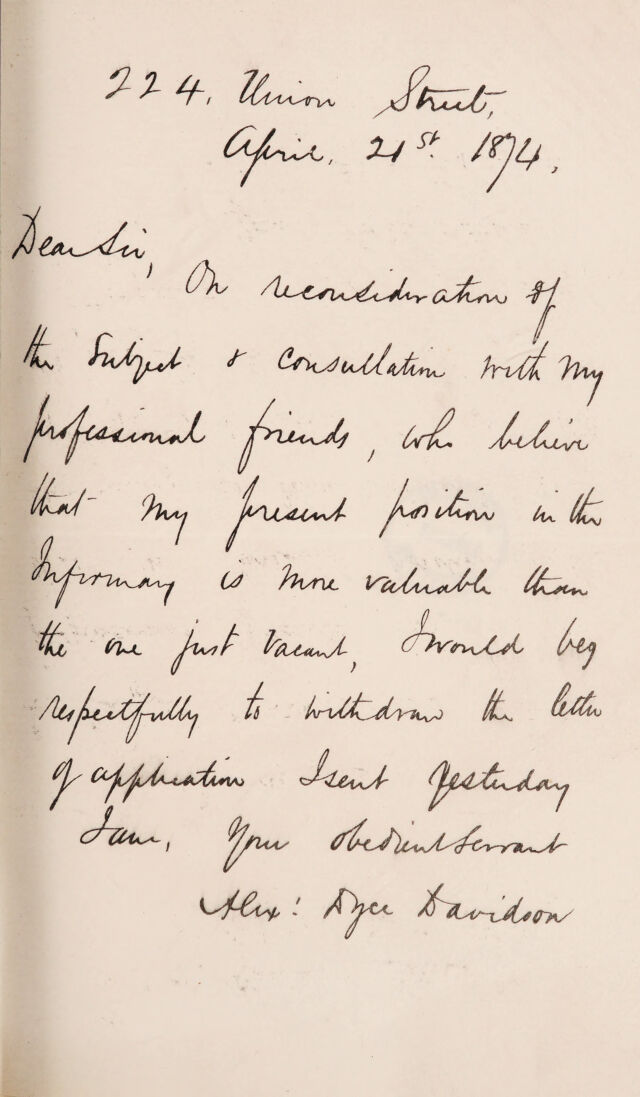 224, Union Street,
April, 21st. 1874,
Dear Sir,
On reconsideration of
the subject & consultation with my
professional friends, who believe
that my present position in the
Infirmary is more valuable than
the one just vacant, I would beg
respectfully to withdraw the letter
of application I sent yesterday
I am, Your obedient Servant
Alexr: Dyce Davidson